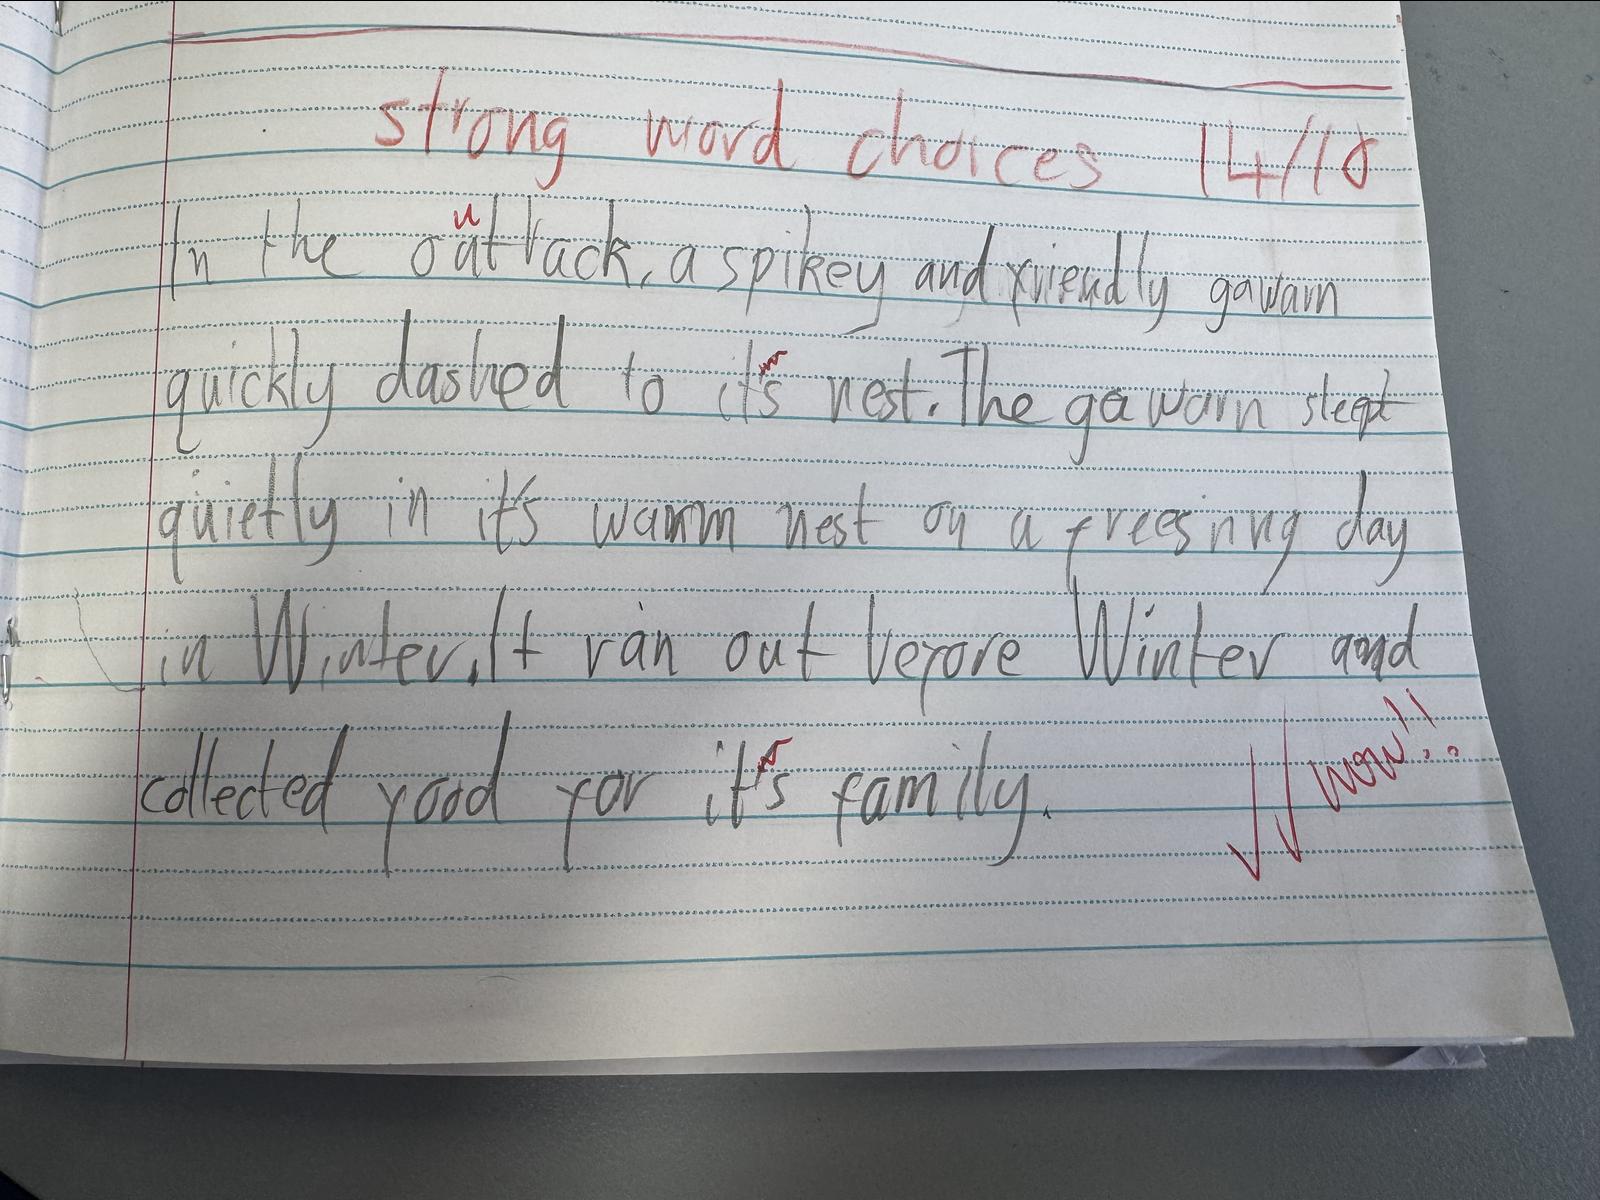 strong word choices 14/10
In the outback, a spikey and friendly gawarn
quickly dashed to it's nest. The gawarn slept
quietly in it's warm nest on a freesning day
in Winter. It ran out before Winter and
collected food for it's family.
wow!!